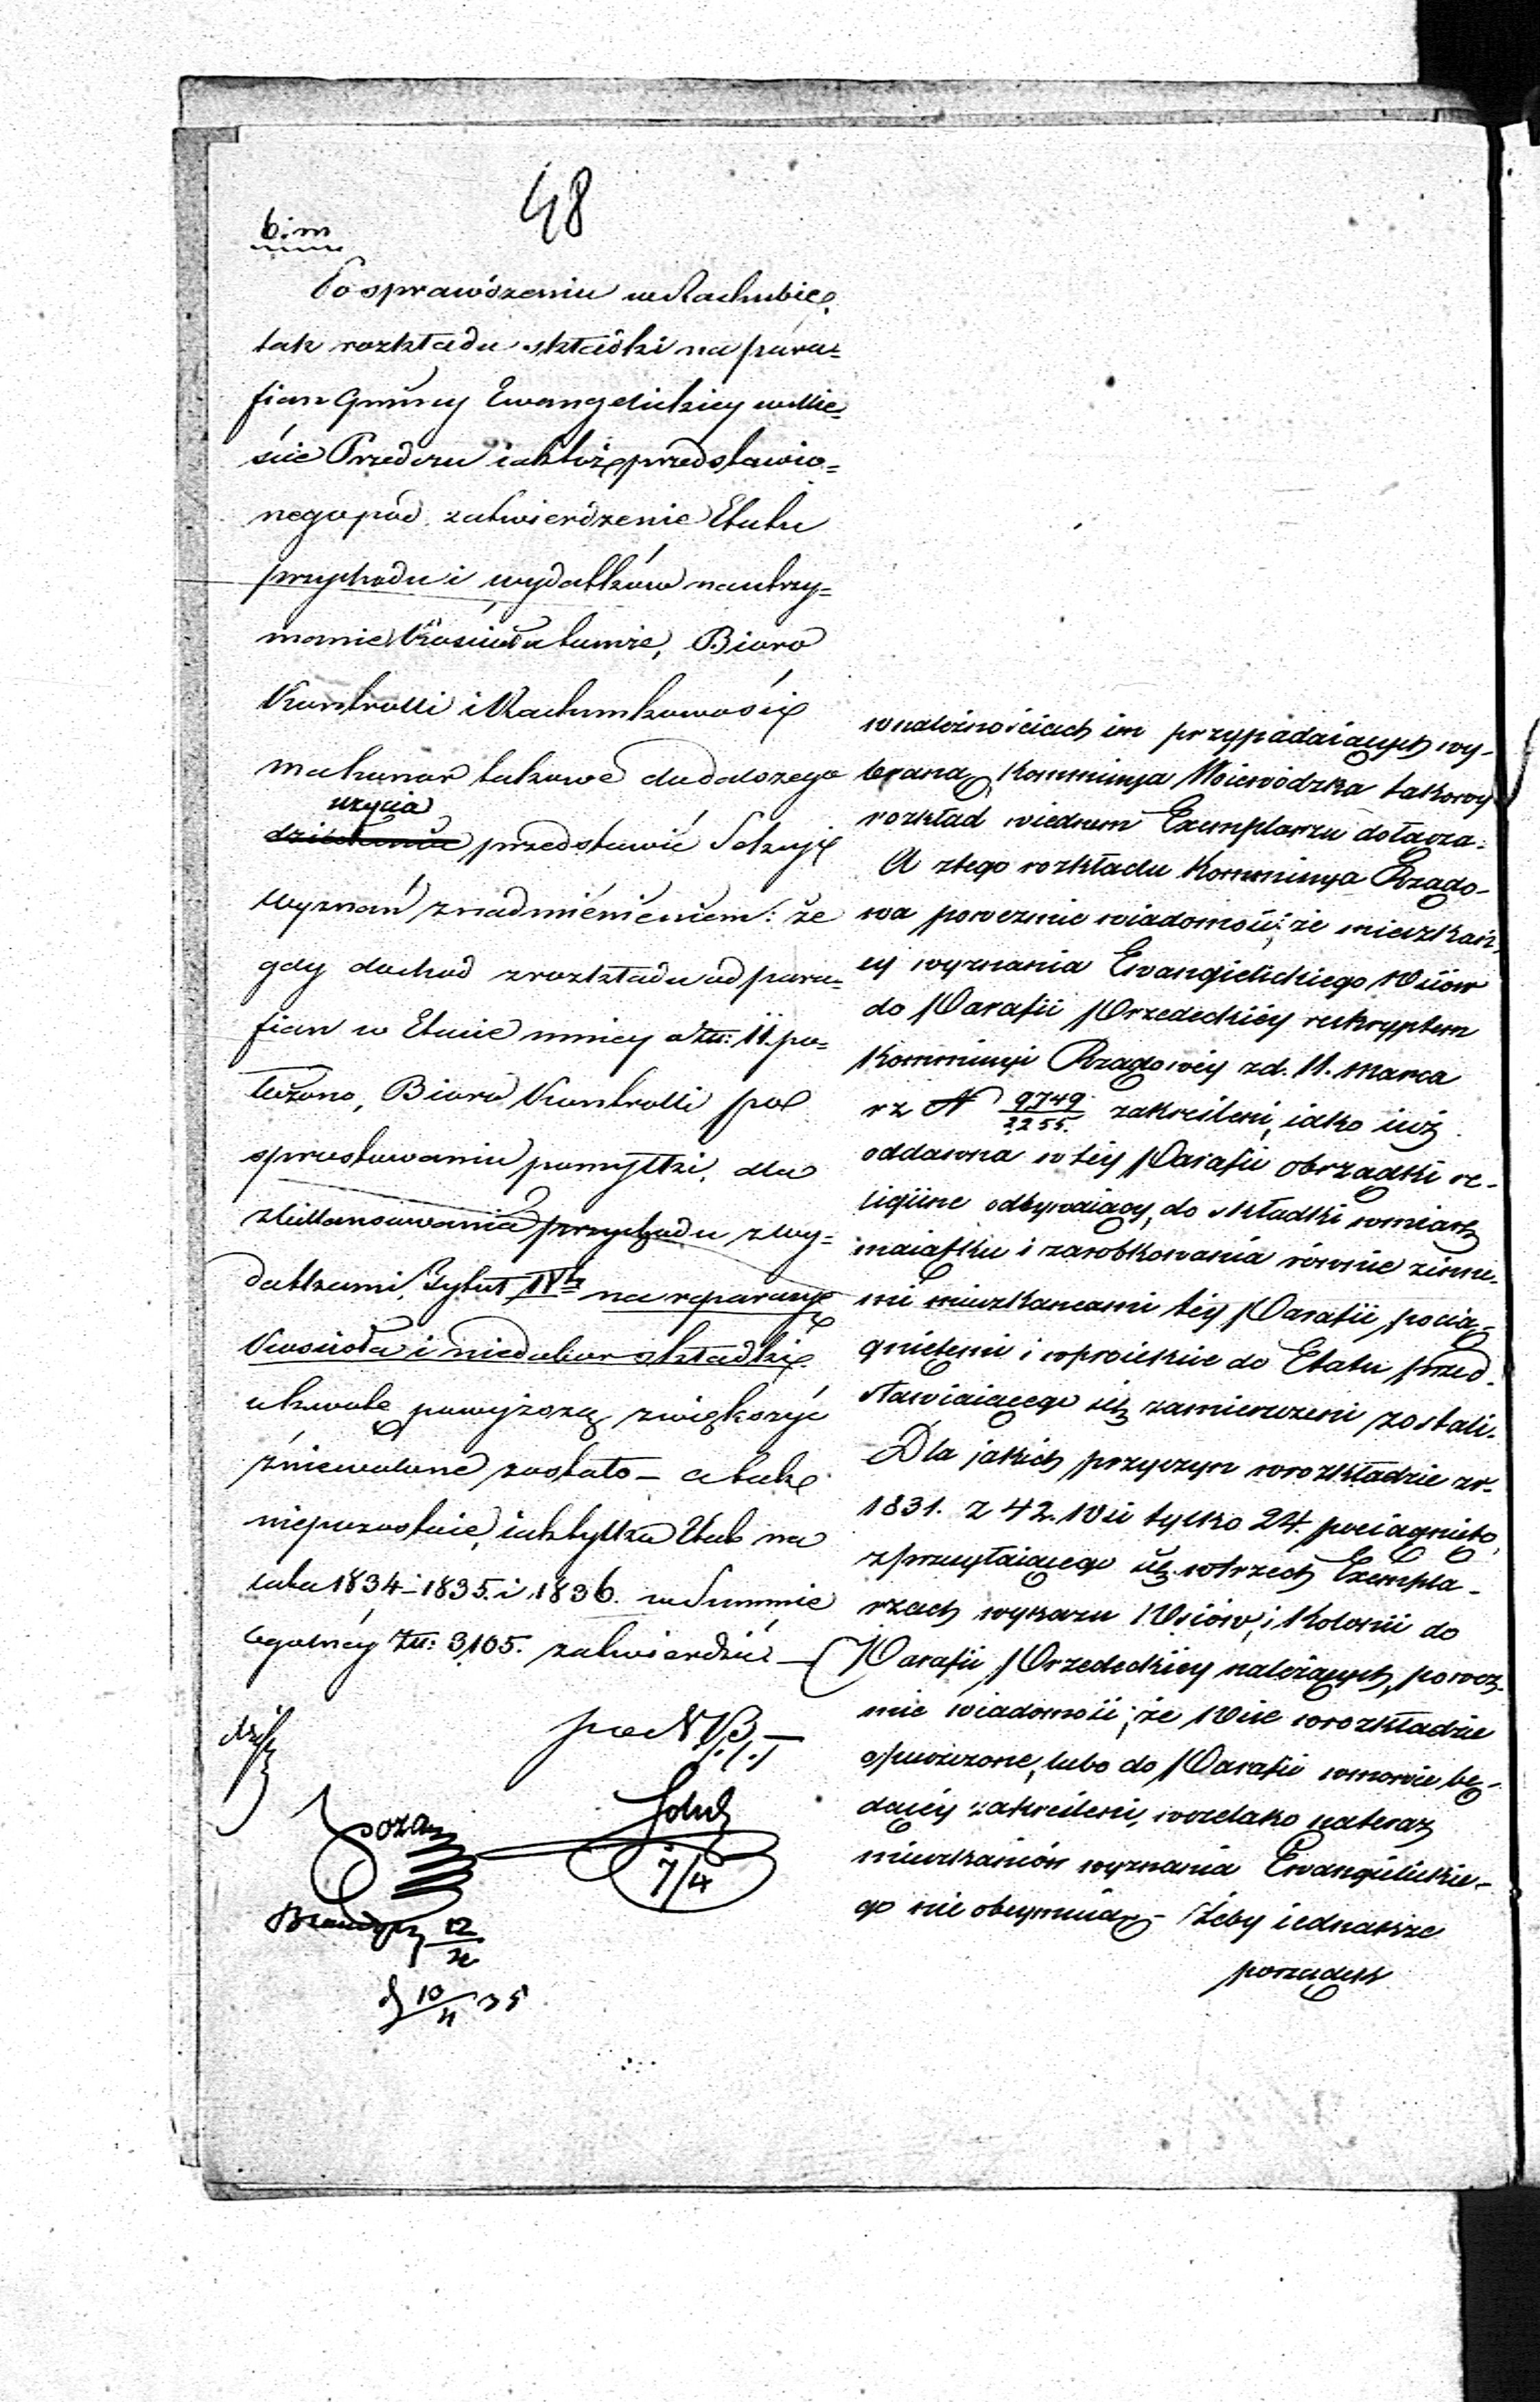 48
b. m
Po sprawdzeniu w Rachubie,
tak rozkładu składki na para=
fian Gminy Ewangelickiey w Mie=
ście Przedczu iaktóż przedstawio=
nego pod zatwierdzenie Etatu
przychodu i wydatków na utrzy=
manie Kościoła tamże, Biuro
Kontrolli i Rachunkowości
ma honor takowe do dalszego
użycia
przedstawić Sekcyi
Wyznań z nadmienieniem: że
gdy dochod z rozkładu od para=
fian w Etacie mniey o Zł: 11. po=
łożono, Biuro Kontrolli po
sprostowaniu pomyłki, dla
zbillansowania przychodu z wy=
datkami, Tytuł IVty na reparacye
Kościoła i niedobor składki
o kwotę powyższą zwiększyć
zniewolone zostało – a tak
niepozostaie, iak tylko Etat na
lata 1834 – 1835. i 1836. w Summie
ogólnéy Zł: 3,105. zatwierdzić –
7/4
12
10 35
w należnościach im przypadaiących wy-
brana, Kommissya Woiewódzka takowy
rozkład w iednym Exemplarzu dołącza.
A z tego rozkładu Kommissya Rządo-
wa poweźmie wiadomość, że mieszkań-
cy wyznania Ewangielickiego Wsiów
do Parafii Przedeckiéy reskryptem
Kommissyi Rządowéy z d. 11. Marca
r z N 9749/2255. zakreśleni, iako iuż
oddawna w téy Parafii obrządki re-
ligiine odbywaiący, do składki w miarę
maiątku i zarobkowania równie z inne-
mi mieszkancami téy Parafii pocią-
gnietemi i w proiekcie do Etatu przed-
stawiaiącego się zamieszczeni zostali.
Dla jakich przyczyn w rozkładzie z r.
1831. z 42. Wsi tylko 24. pociągnięto,
z przesyłaiącego się w trzech Exempla-
rzach wykazu Wsiów i Kolonii do
Parafii Przedeckiéy należących, powez-
mie wiadomość, że Wsie w rozkładzie
opuszczone, lubo do Parafii w mowie bę-
dącéy zakreśleni, wszelako na teraz
mieszkańców wyznania Ewangielickie-
go nie obeymuią – Żeby iednakże
porządek